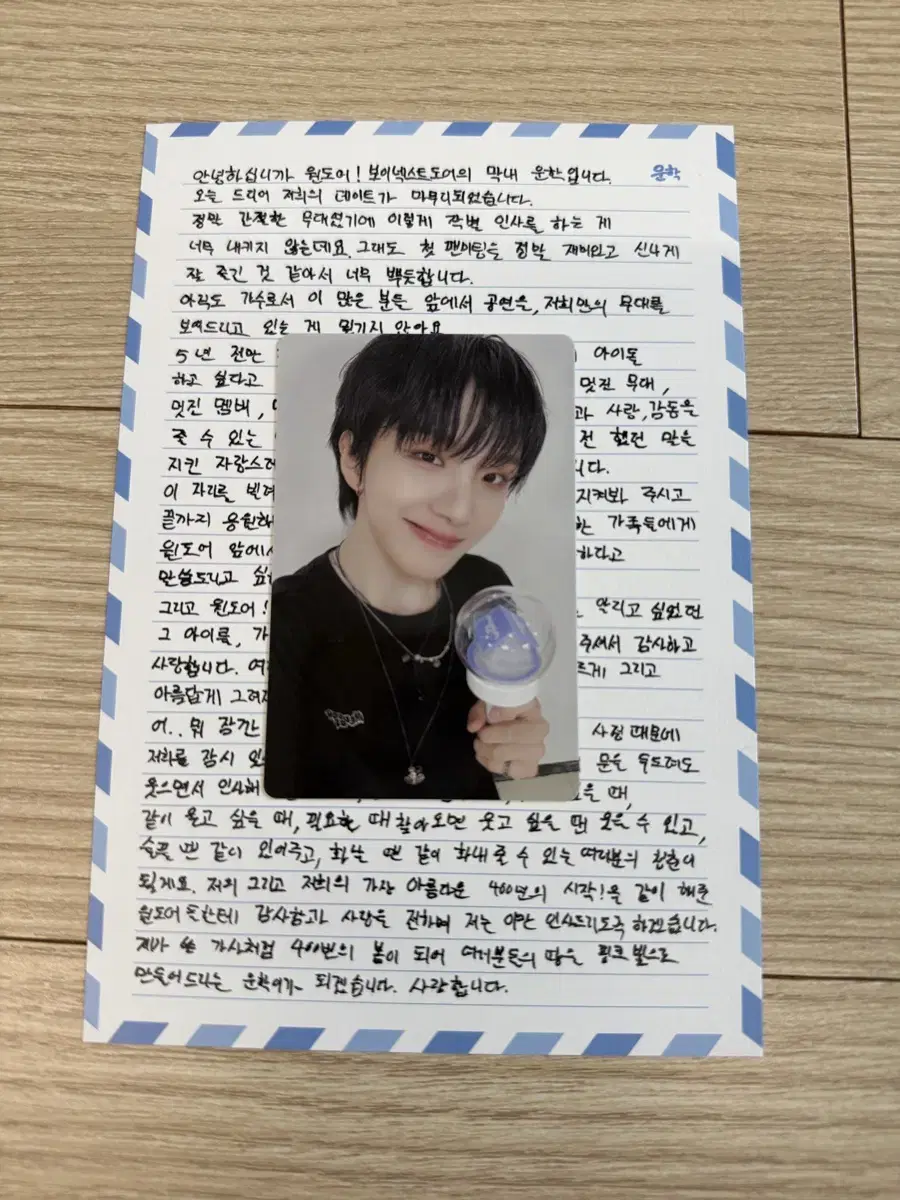 안녕하십니까 원도어! 보이넥스트도어의 막내 운학입니다.
운학
오늘 드디어 저희의 데이트가 마무리되었습니다.
정말 간절한 무대였기에 이렇게 작별 인사를 하는 게
너무 내키지 않은데요. 그래도 첫 팬미팅을 정말 재미있고 신나게
잘 즐긴 것 같아서 너무 뿌듯합니다.
아직도 가수로서 이 많은 분들 앞에서 공연을, 저희만의 무대를
보여드리고 있는 게 믿기지 않아요
5년 전만 아이돌
하고 싶다고 멋진 무대,
멋진 멤버, 과 사랑, 감동을
줄 수 있는 전 했던 말을
지킨 자랑스러 니다.
이 자리를 빌려 지켜봐 주시고
끝까지 응원해 한 가족들에게
원도어 앞에서 하다고
말씀드리고 싶
그리고 원도어! 알리고 싶었던
그 아이를, 가 주셔서 감사하고
사랑합니다. 여 르게 그리고
아름답게 그려
어.. 뭐 잠깐 사정 때문에
저희를 잠시 있 문을 두드려도
웃으면서 인사해 을 때,
같이 울고 싶을 때, 필요할 때 찾아오면 웃고 싶을 땐 웃을 수 있고,
슬플 땐 같이 있어주고, 화날 땐 같이 화내 줄 수 있는 여러분의 청춘이
될게요. 저의 그리고 저희의 가장 아름다운 400번의 시작!을 같이 해준
원도어 들한테 감사함과 사랑을 전하며 저는 이만 인사드리도록 하겠습니다.
제가 쓴 가사처럼 400번의 봄이 되어 여러분들의 맘을 핑크 빛으로
만들어 드리는 운학이가 되겠습니다. 사랑합니다.